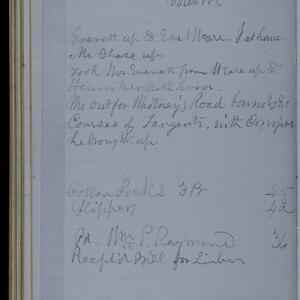 Everett up to East Weare. I at home.
Mr Chase up
Took Mr Everett from Weare up to
Henniker with him.
Me out for Whitney's Road bounds &c
Courses of Tangents, with Compass
he brought up
Cotton Socks 3 Pr 45
Slippers 42
Pd. Wm P. Raymond 36
Receptd Bill for Limbers